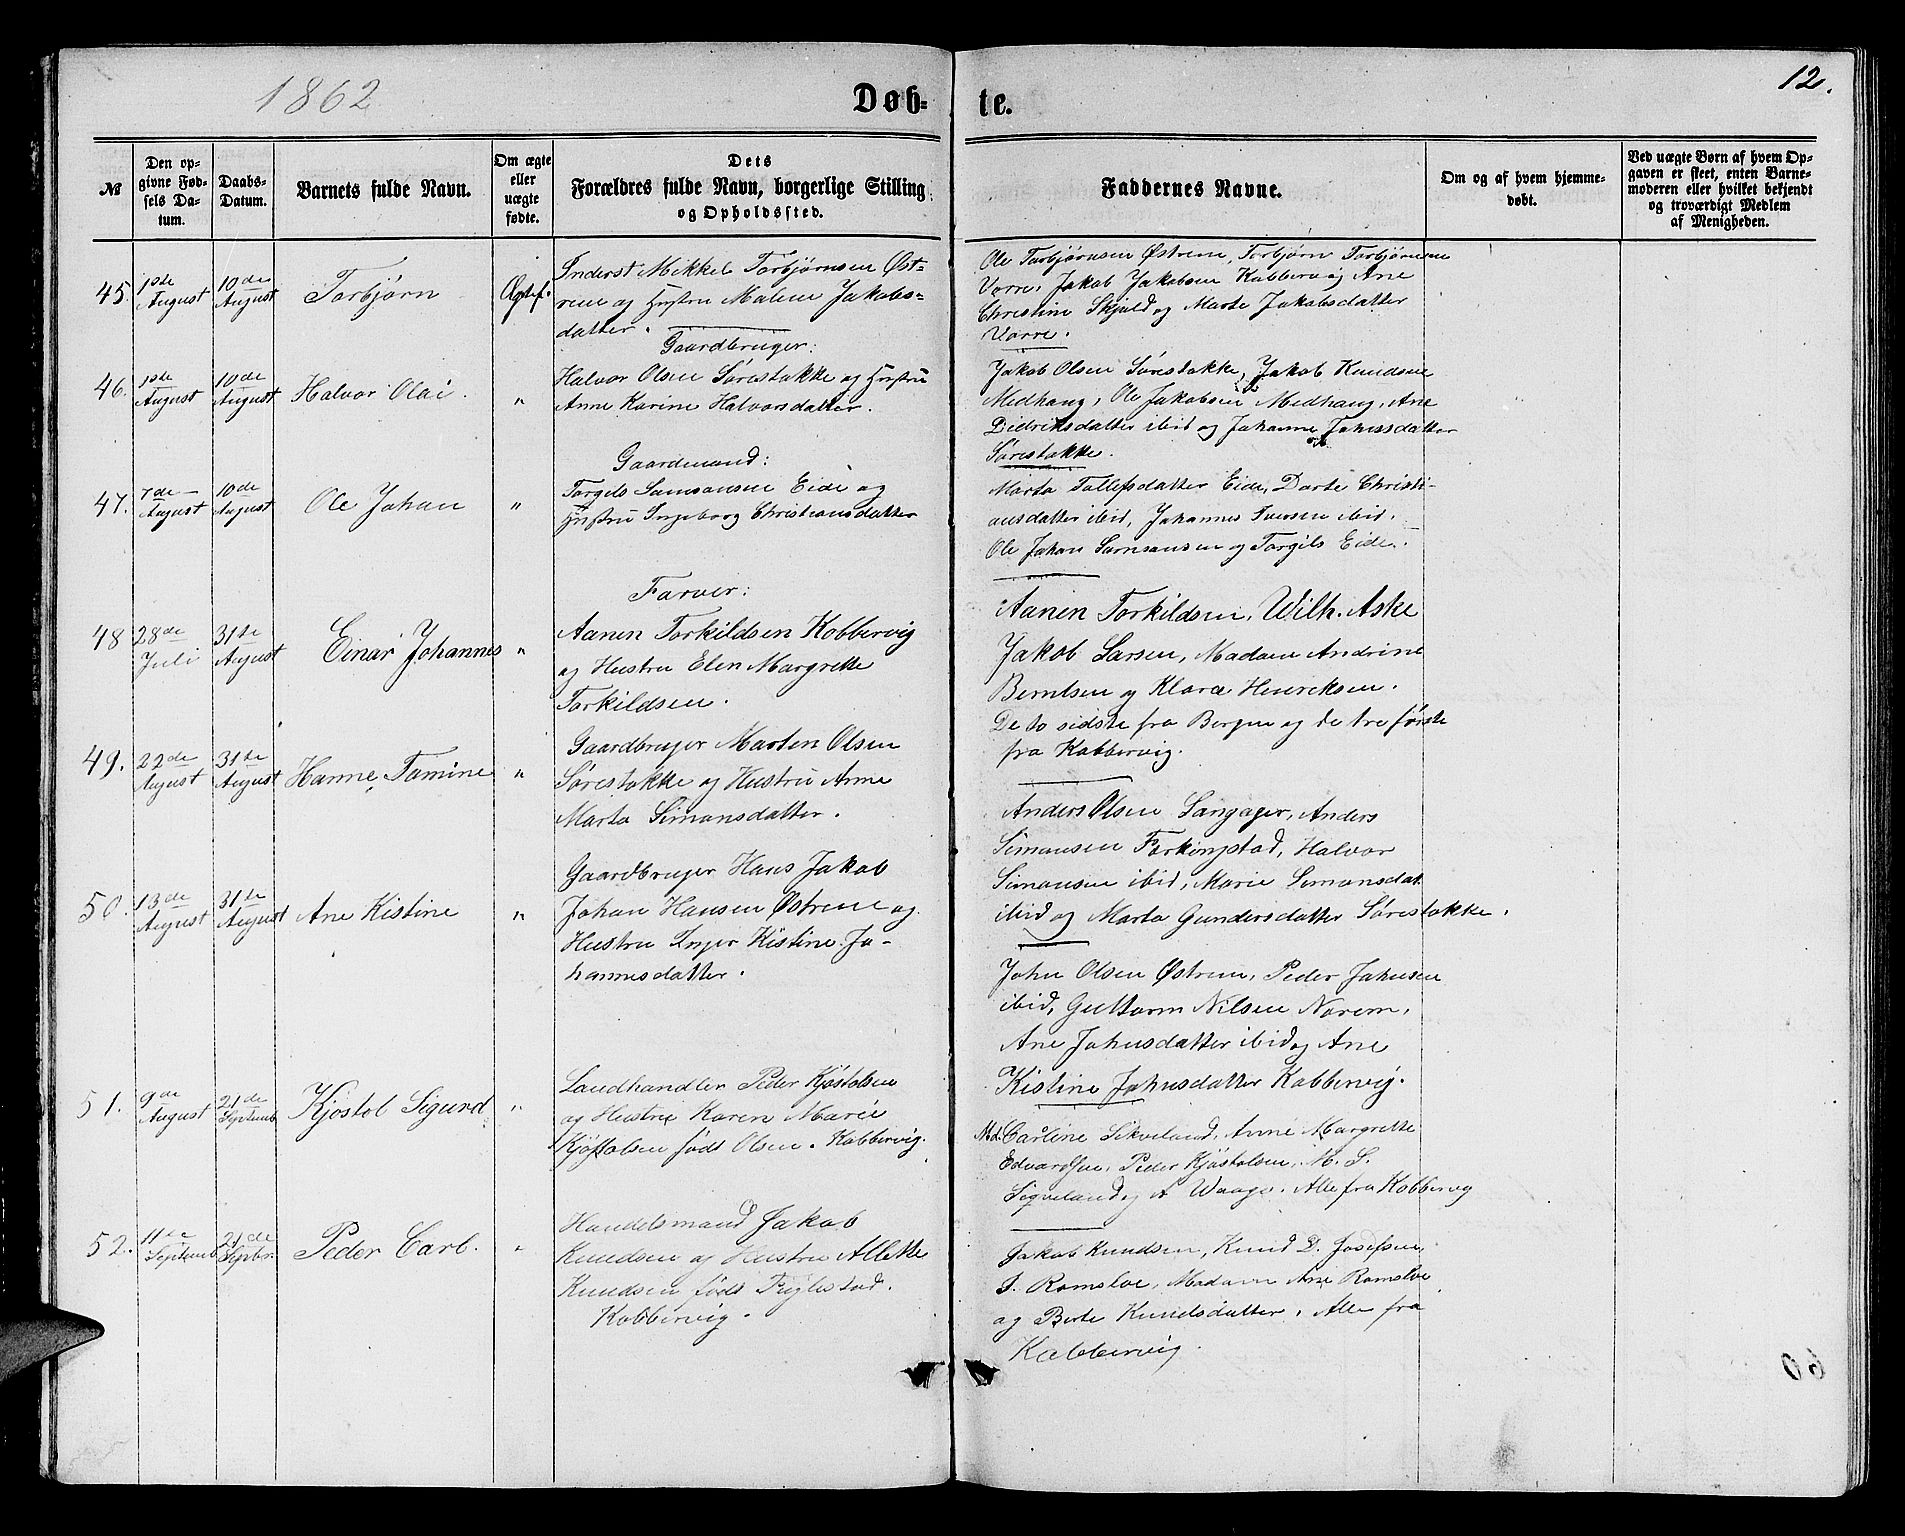 1862
Døb=
te.
12.
№
Den op=
givne Fød=
sels Da=
tum.
Daabs=
Datum.
Barnets fulde Navn.
Om ægte
eller
uægte
fødte.
Dets
Forældres fulde Navn, borgerlige Stilling
og Opholdssted.
Faddernes Navne.
Om og af hvem hjemme=
døbt.
Ved uægte Børn af hvem Op=
gaven er skeet, enten Barne=
moderen eller hvilket bekjendt
og troværdigt Medlem
af Menigheden.
45.
1ste
August
10de
August
Torbjørn
Ægtef.
Inderst Mikkel Torbjørnsen Øst=
rem og Hustru Malene Jakobs=
datter.
Ole Torbjørnsen Østrem, Torbjørn Torbjørnsen
Vorre, Jakob Jakobsen Kobbervig Ane
Christine Skjold og Marte Jakobsdatter
Vorre.
46.
1ste
August
10de
August
Halvor Olai.
"
Gaardbruger:
Halvor Olsen Sørestokke og Hustru
Anne Karine Halvorsdatter.
Jakob Olsen Sørestokke, Jakob Knudsen
Medhaug, Ole Jakobsen Medhaug, Ane
Didriksdatter ibid og Johanne
Sørestokke.
47.
7de
August
10de
August
Ole Johan
"
Gaardmand:
Torgils Samsonsen Eide og
Hustru Ingeborg Christiansdatter
Marta Tollefsdatter Eide, Dorte Christi-
ansdatter ibid, Johannes Iversen ibid,
Ole Johan Samsonsen og Torgils Eide.
48
28de
Juli
31te
August
Einar Johannes
"
Farver:
Aanen Torkildsen Kobbervig
og Hustru Elen Margrette
Torkildsen.
Aanen Torkildsen, Wilh. Aske
Jakob Larsen, Madam Andrine
Berntsen og Klara Henriksen.
De to sidste fra Bergen og de tre første
fra Kobbervig.
49.
22de
August
31te
August
Hanne Tomine
"
Gaardbruger Morten Olsen
Sørestokke og Hustru Anne
Marta Simonsdatter.
Anders Olsen Langager, Anders
Simonsen Ferkingstad, Halvor
Simonsen ibid, Marie Simonsdat.
ibid og Marta Gundersdatter Sørestokke.
50.
13de
August
31te
August
Ane Kistine
"
Gaardbruger Hans Jakob
Johan Hansen Østrem og
Hustru Inger Kistine Jo-
hannesdatter.
John Olsen Østrem, Peder Johnsen
ibid, Guttorm Nilsen Norem,
Ane Johnsdatter ibid og Ane
Kistine Johnsdatter Kobbervig.
51.
9de
August
21de
Septemb
Kjøstol Sigurd
"
Landhandler Peder Kjøstolsen
og Hustru Karen Marie
Kjøstolsen født Olsen. Kobbervig.
Md. Carline Sikveland, Anne Margrette
Edvardsen, Peder Kjøstolsen, M. S.
Sigveland og A Waage. Alle fra Kobbervig
52.
11te
Septemb.
21de
Septbr.
Peder Carl.
"
Handelsmand Jakob
Knudsen og Hustru Allette
Knudsen født
Kobbervig.
Jakob Knudsen, Knud D. Josefsen,
Romsloe, Madam Ane Romsloe
og Berte Knudsdatter. Alle fra
Kobbervig.